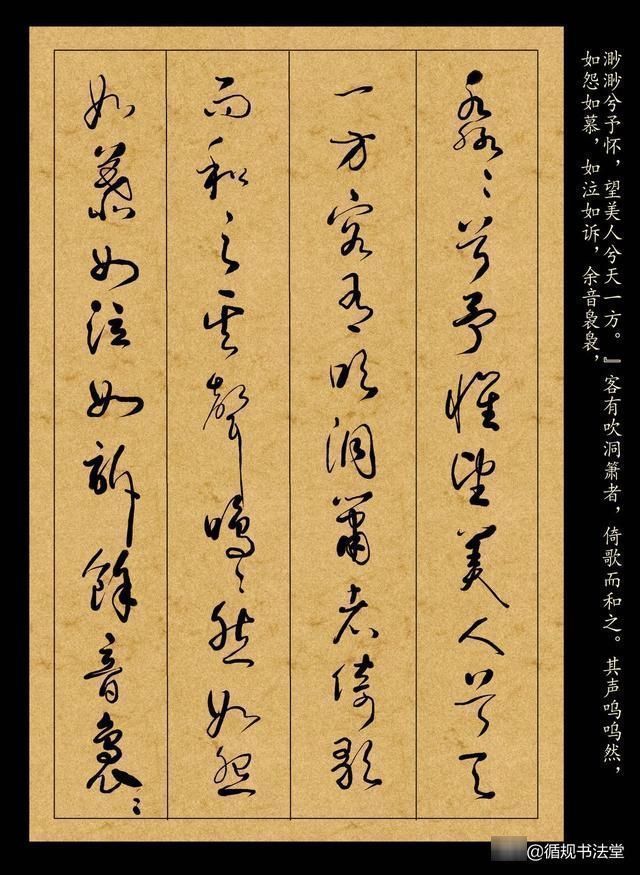 渺渺兮予怀，望美人兮天一方。』客有吹洞箫者，倚歌而和之。其声呜呜然，
如怨如慕，如泣如诉，余音袅袅，
淼〻兮予懷望美人兮天
一方客有吹洞簫者倚歌
而和之其聲嗚〻然如怨
如慕如泣如訴餘音裊〻
@循规书法堂